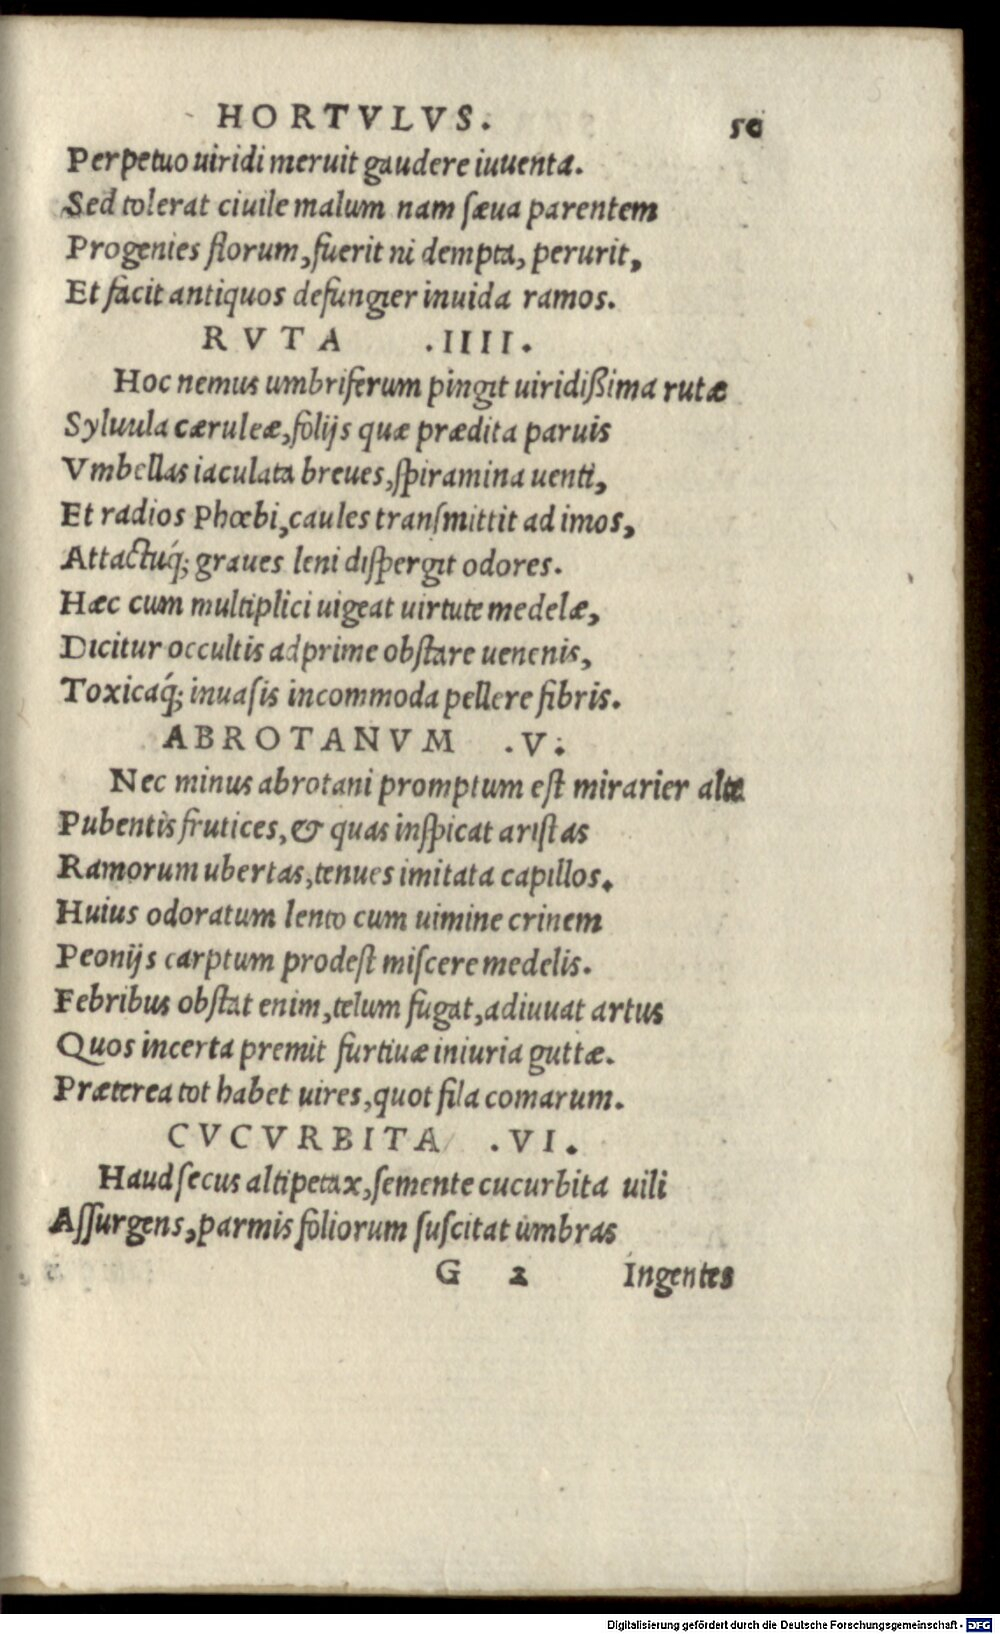 HORTVLVS. 50
Perpetuo uiridi meruit gaudere iuuenta.
Sed tolerat ciuile malum nam ſæua parentem
Progenies florum, fuerit ni dempta, perurit,
Et facit antiquos defungier inuida ramos.
RVTA .IIII.
Hoc nemus umbriferum pingit uiridißima rutæ
Syluula cæruleæ, folijs quæ prædita paruis
Vmbellas iaculata breues, ſpiramina uenti,
Et radios Phœbi, caules tranſmittit ad imos,
Attactuq́; graues leni diſpergit odores.
Hæc cum multiplici uigeat uirtute medelæ,
Dicitur occultis adprime obſtare uenenis,
Toxicaq́; inuaſis incommoda pellere fibris.
ABROTANVM .V.
Nec minus abrotani promptum eſt mirarier altæ
Pubentis frutices, & quas inſpicat ariſtas
Ramorum ubertas, tenues imitata capillos.
Huius odoratum lento cum uimine crinem
Peonijs carptum prodeſt miſcere medelis.
Febribus obſtat enim, telum fugat, adiuuat artus
Quos incerta premit furtiuæ iniuria guttæ.
Præterea tot habet uires, quot fila comarum.
CVCVRBITA .VI.
Haud ſecus altipetax, ſemente cucurbita uili
Aſſurgens, parmis foliorum ſuſcitat umbras
G 2 Ingentes
Digitalisierung gefördert durch die Deutsche Forschungsgemeinschaft - DFG